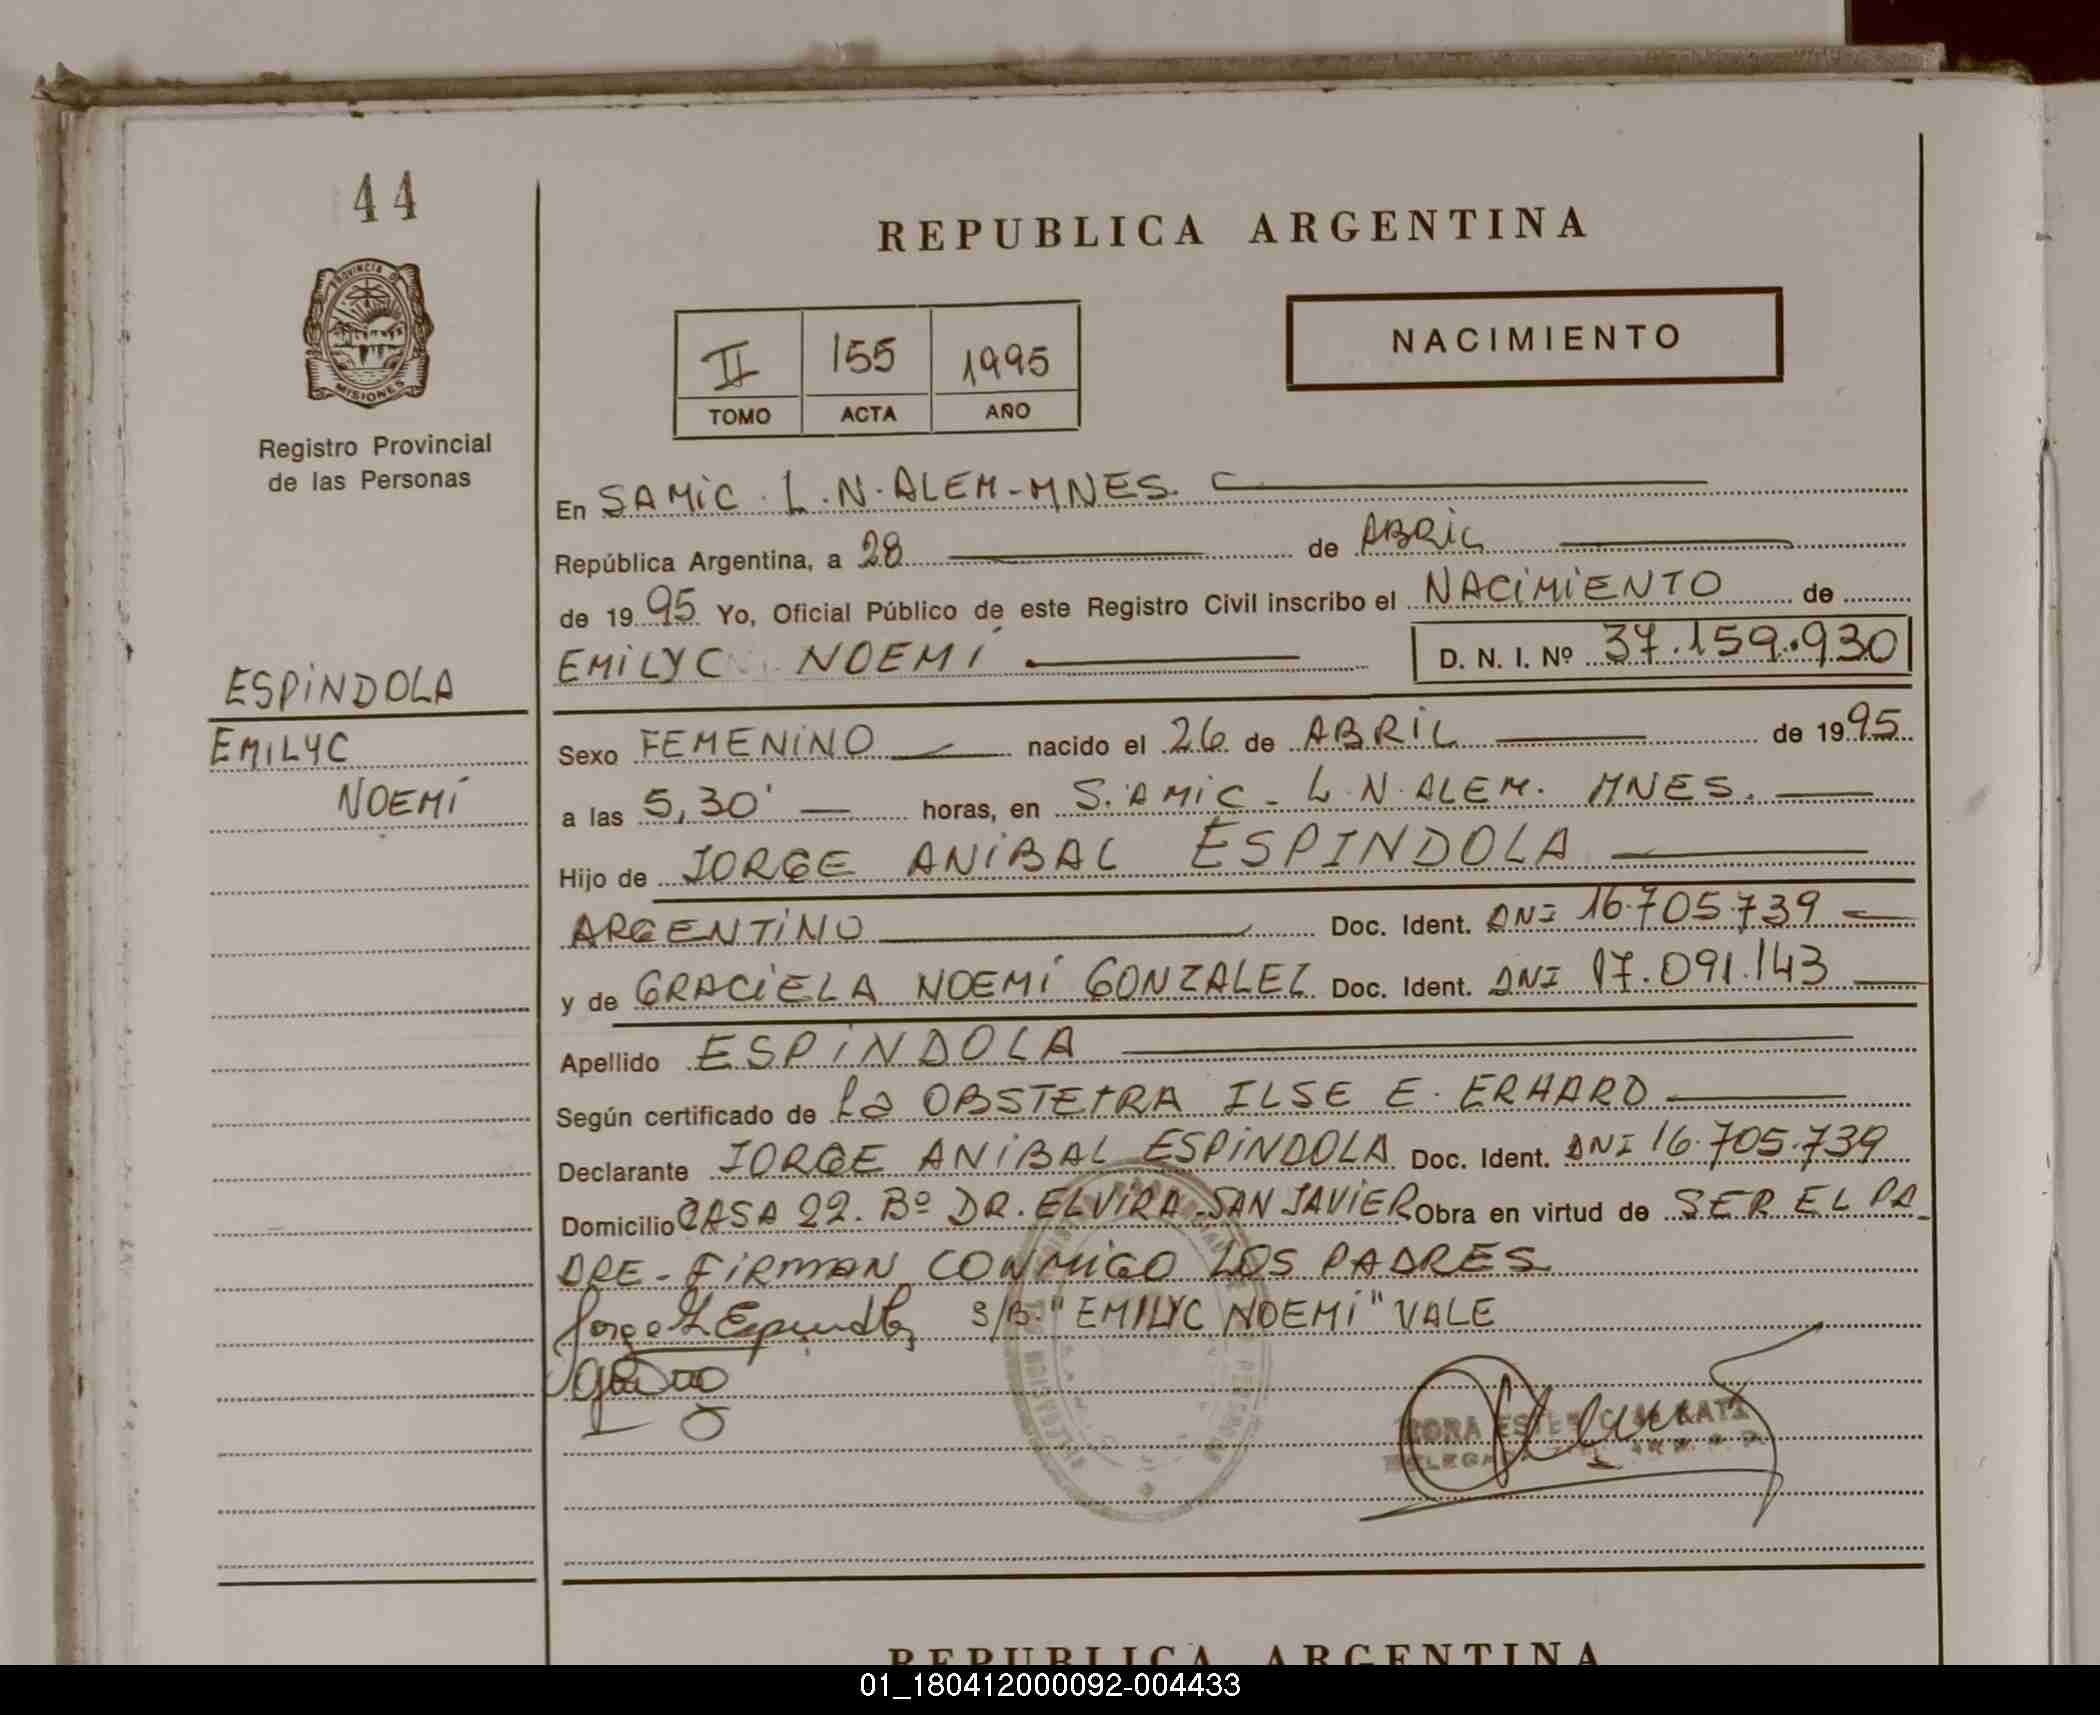 44
REPUBLICA ARGENTINA
PROVINCIA D
MISIONES
Registro Provincial
de las Personas
II 155 1995
TOMO ACTA AÑO
NACIMIENTO
En SAMIC. L.N. ALEM-MNES.
República Argentina, a 28 de ABRIL
de 1995 Yo, Oficial Público de este Registro Civil inscribo el NACIMIENTO de
EMILYC NOEMI D. N. I. Nº 37.159.930
ESPINDOLA
EMILYC
NOEMÍ
Sexo FEMENINO nacido el 26 de ABRIL de 1995
a las 5,30' horas, en S.AMIC - L.N. ALEM. MNES.
Hijo de JORGE ANIBAL ESPINDOLA
ARGENTINO Doc. Ident. DNI 16.705.739
y de GRACIELA NOEMÍ GONZALEZ Doc. Ident. DNI 17.091.143
Apellido ESPINDOLA
Según certificado de La OBSTETRA ILSE E. ERHARD
Declarante JORGE ANIBAL ESPINDOLA Doc. Ident. DNI 16.705.739
Domicilio CASA 22. Bº DR. ELVIRA-SAN JAVIER Obra en virtud de SER EL PA-
DRE - FIRMAN CONMIGO LOS PADRES
S/B. "EMILYC NOEMÍ" VALE
REPUBLICA ARGENTINA
01_180412000092-004433